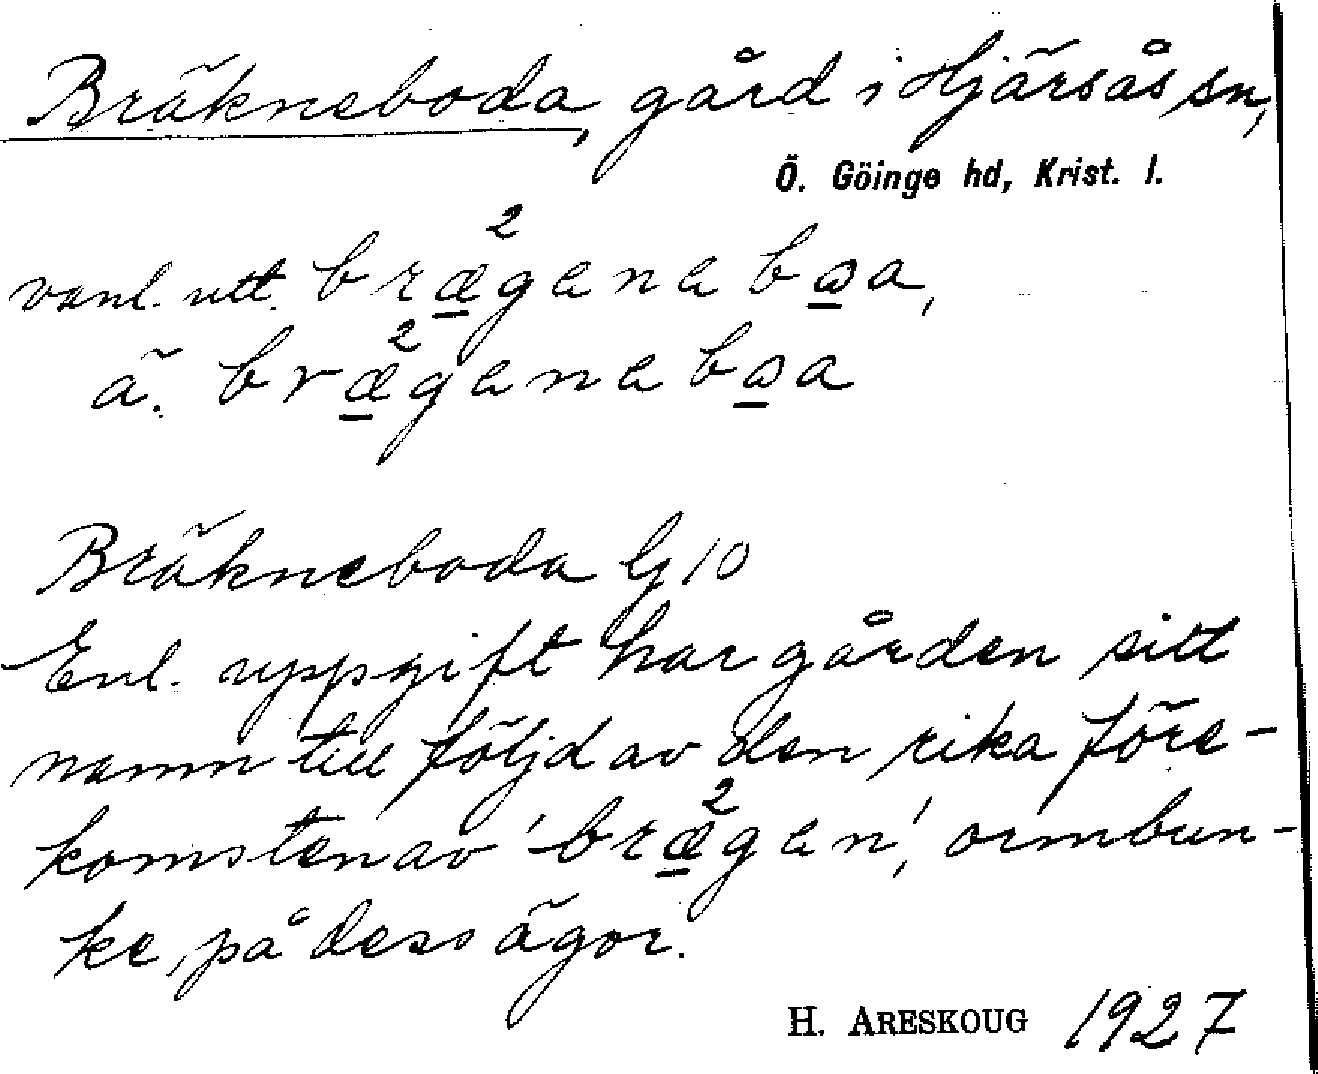 Bräkneboda, gård i Hjärsås sn,
Ö. Göinge hd, Krist. l.
vanl. utt. bræ²genebωa,
ä. bræ²genebωa
Bräkneboda G 10
Enl. uppgift har gården sitt
namn till följd av den rika före-
komsten av 'bræ²gen', ormbun-
ke, på dess ägor.
H. ARESKOUG 1927